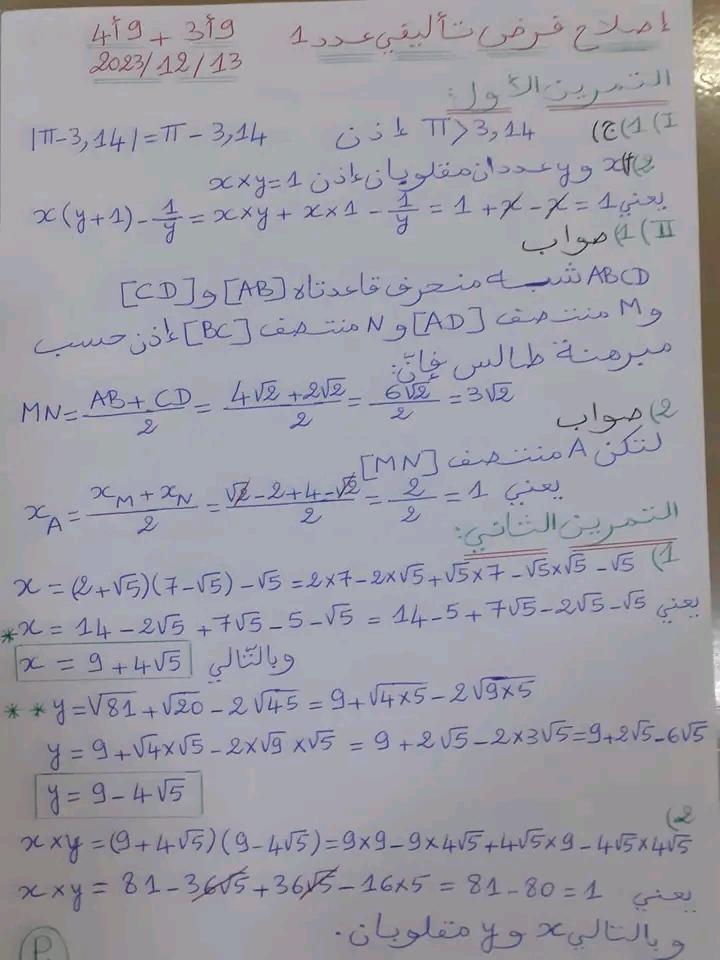 إصلاح فرض تأليفي عدد 1
9أ3 + 9أ4
2023/12/13
التمرين الأول:
I) 1) ج) π > 3,14 إذن |π-3,14| = π - 3,14
2) أ) x و y عددان مقلوبان إذن x×y=1
يعني x(y+1) - 1/y = x×y + x×1 - 1/y = 1 + x - x = 1
II) 1) صواب
ABCD شبه منحرف قاعدتاه [AB] و [CD]
و M منتصف [AD] و N منتصف [BC] إذن حسب
مبرهنة طالس فإنّ:
MN = (AB + CD)/2 = (4√2 + 2√2)/2 = 6√2/2 = 3√2
2) صواب
لتكن A منتصف [MN]
يعني x_A = (x_M + x_N)/2 = (√2 - 2 + 4 - √2)/2 = 2/2 = 1
التمرين الثاني:
1) x = (2+√5)(7-√5) - √5 = 2×7 - 2×√5 + √5×7 - √5×√5 - √5
يعني * x = 14 - 2√5 + 7√5 - 5 - √5 = 14 - 5 + 7√5 - 2√5 - √5
وبالتّالي x = 9 + 4√5
** y = √81 + √20 - 2√45 = 9 + √4×5 - 2√9×5
y = 9 + √4×√5 - 2×√9×√5 = 9 + 2√5 - 2×3√5 = 9 + 2√5 - 6√5
y = 9 - 4√5
2)
x×y = (9+4√5)(9-4√5) = 9×9 - 9×4√5 + 4√5×9 - 4√5×4√5
يعني x×y = 81 - 36√5 + 36√5 - 16×5 = 81 - 80 = 1
وبالتالي x و y مقلوبان.